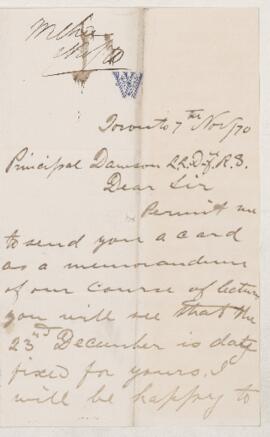 Nov/70
Toronto 7th Nov/70
Principal Dawson LL.D. F.R.S.
Dear Sir
Permit me
to send you a card
as a memorandum
of our Course of lectures
you will see that the
23rd December is date
fixed for yours. I
will be happy to